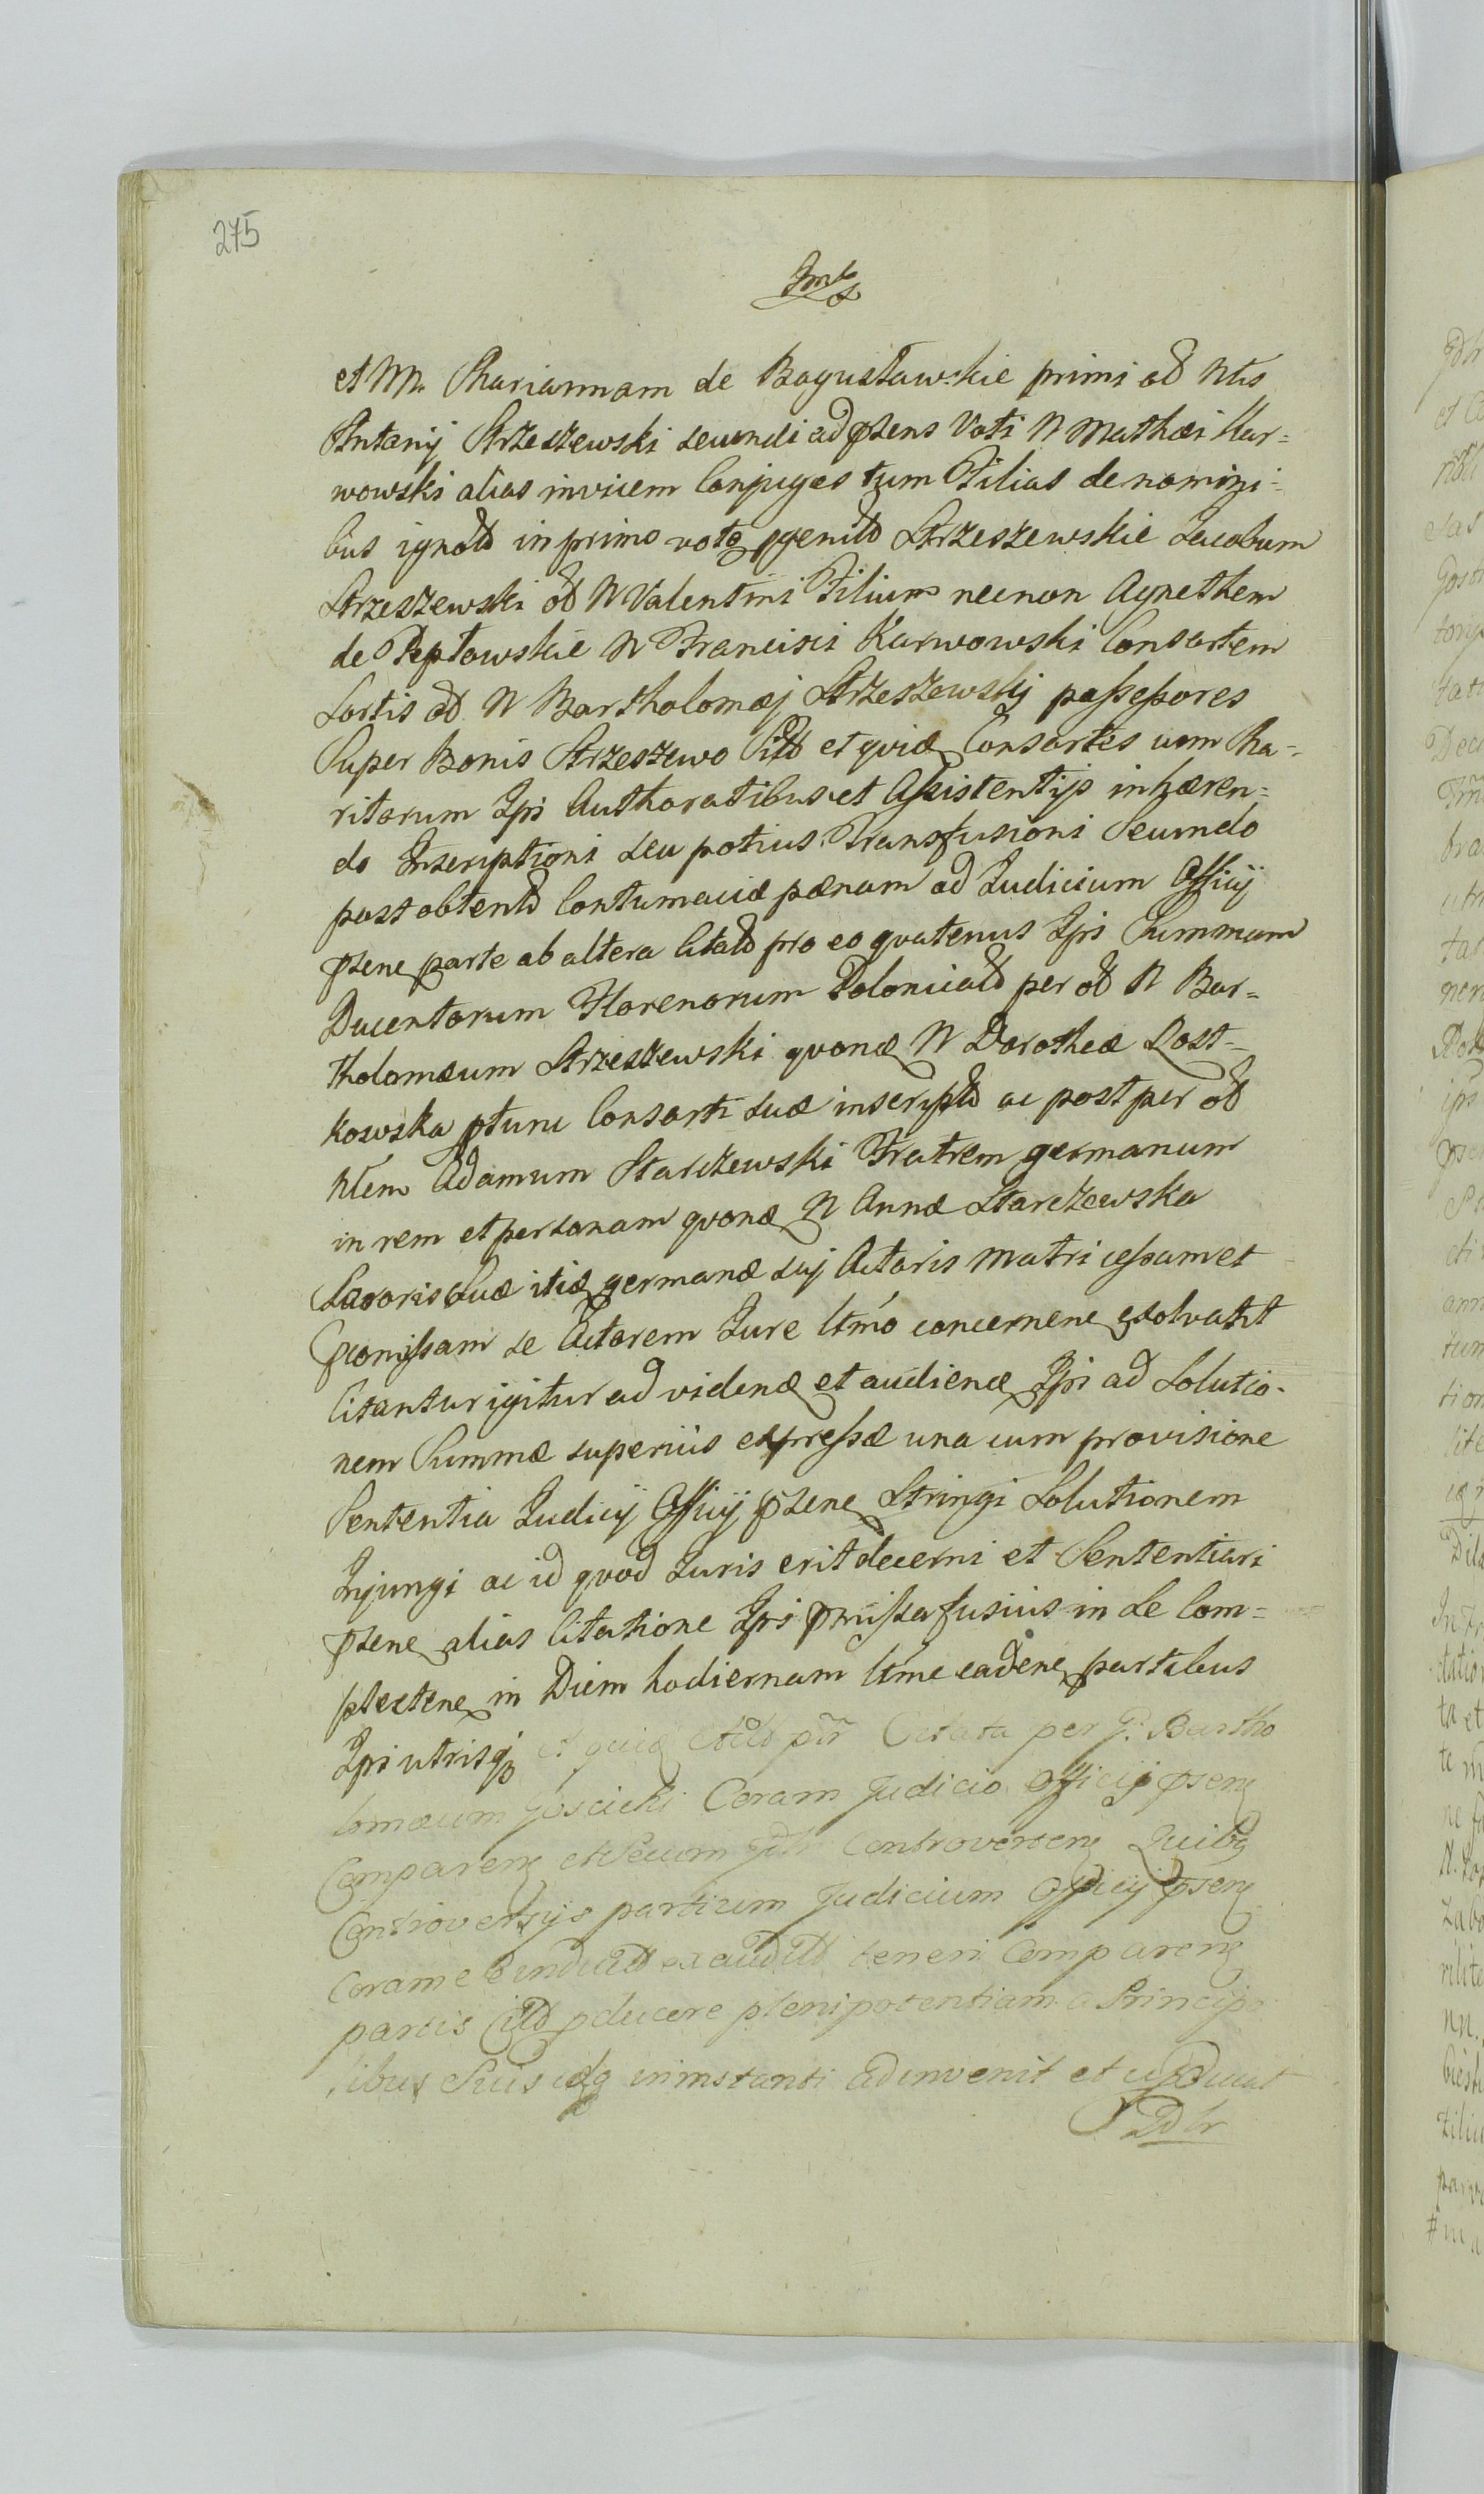 275
et M. Mariannam de Bogusławskie primi od Nlis
Antonij Strzeszewski secundi ad psens Voti N Mathæi Kar=
wowski alias invicem Conjuges tum Filias de nomini=
bus ignotd in primo voto pgenitd Strzeszewskie Jacobum
Strzeszewski od N Valentini Filium necnon Agnethem
de Peptowskie N Francisci Karwowski Consortem
Sortis od N Bartholomæj Strzeszewskj possessores
Super Bonis Strzeszewo Sitd et quid Consortes cum Ma=
ritorum Ipsi Authoratibus et Assistentijs inhæren=
do Inscriptioni seu potius Transfusioni Secundo
post obtentd Contumaciæ pænam ad Judicium Officij
psene parte ab altera Citatd pro eo quatenus Ipsi Summam
Ducentorum Florenorum Polonicald per od N Bar=
tholomæum Strzeszewski quond N Dorotheæ Rost=
kowska ptunc Consorti suæ inscriptd ac post per od
Nlem Adamum Starczewski Fratrem germanum
in rem et personam quond N Annæ Starczewska
Sororis Suæ itid germanæ suj Actoris Matri cessam et
Actorem Jure ltmo concernene exolvant
Citantur igitur ad videnđ et audienđ Ipsi ad Solutio-
nem Summæ superius expressæ una cum provisione
Sententia Judicij Officij psene Stringi Solutionem
Injungi ac id quod Juris erit decerni et Sententiari
psene alias Citatione Ipsi pmissa fusius in se Com=
plectene in Diem hodiernam ltme cadene partibus
Ipsi utrisq et quid Citatd ptr Citata per G. Bartho
lomæum Gościcki Coram Judicio Officij psene
Comparene et Secum Controversene Quibq
Controversijs partium Judicium Officij psene
coram exauditd teneri Comparene
partis Citd pducere plenipotentiam a Principa
libus Suis idq in instanti adinvenit et